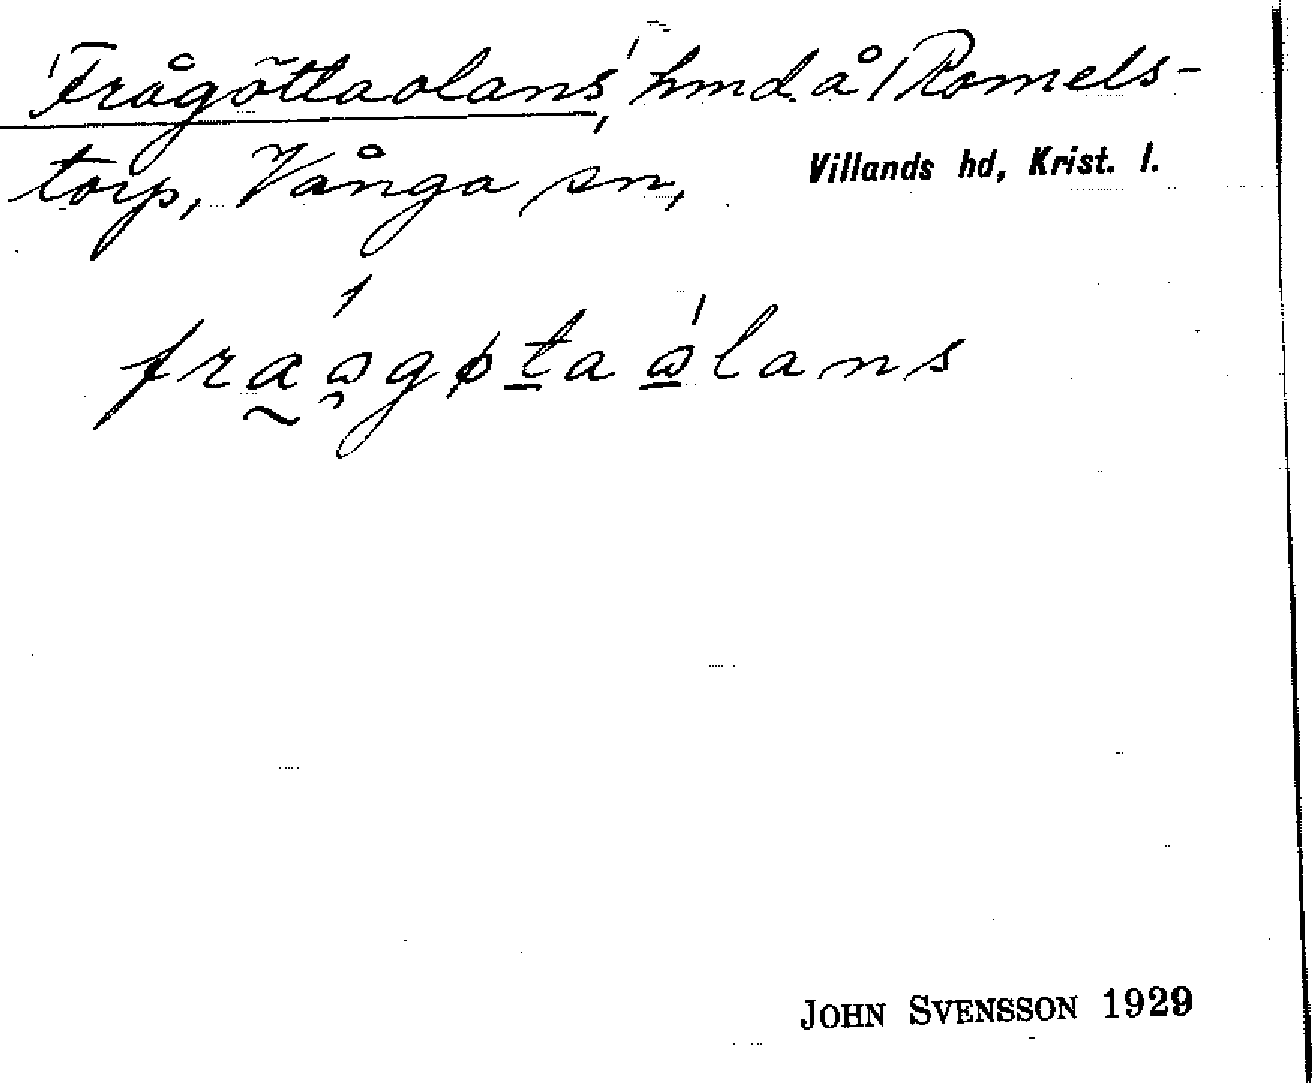 'Frågöttaolans', hmd å Romels-
torp, Vånga sn, Villands hd, Krist. l.
JOHN SVENSSON 1929